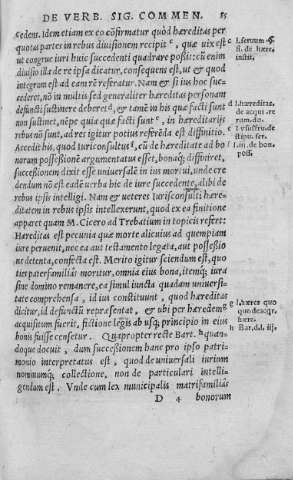 DE VERB. SIG. COMMEN. 85
cedens. Idem etiam ex eo cōfirmatur quòd hæreditas per
quotas partes in rebus diuisionem recipit, quæ uix est
ut congruè iuri huic succedenti quadrare possit: cū enim
diuisio illa de re ipsa dicatur, consequens est, ut & quod
integrum est ad eam rē referatur. Nam & si is hoc suc-
cederet, nō in multis sed generaliter hæreditas personam
defuncti sustinere deberet, & tamē in his quæ facti sunt
nō sustinet, népe quia quæ facti sunt, in hæreditarijs
rebus nō sunt, ad res igitur potius referēda est diffinitio.
Accedit his, quod Iurisconsultus, cū de hæreditate ad bo
norum possessionē argumentatus esset, bonaq; diffiniret,
successionem dixit esse uniuersalē in ius mortui, unde cre
dendum nō est eadē uerba hic de iure succedente, alibi de
rebus ipsis intelligi. Nam & ueteres Iurisconsulti hære
ditatem in rebus ipsis intellexerunt, quod ex ea finitione
apparet quam M. Cicero ad Trebatium in topicis refert:
Hæreditas est pecunia quæ morte alicuius ad quempiam
iure peruenit, nec ea aut testamento legata, aut possessio
ne detenta, confecta est. Meritò igitur sciendum est, quo
ties paterfamiliâs moritur, omnia eius bona, itemq; iura si
ne domino remanere, ea simul iuncta quadam uniuersi-
tate comprehensa, id ius constituunt, quod hæreditas
dicitur, id defunctū repræsentat, & ubi per hæredem
acquisitum fuerit, fictione legis ab usq; principio in eius
bonis fuisse censetur. Quapropter rectè Bart. quan-
doque docuit, dum successionem hanc pro ipso patri-
monio interpretatus est, quod de uniuersali iurium
nominumq; collectione, non de particulari intelli-
gendum est. Vnde cum lex municipalis matrisfamiliâs
D 4 bonorum
de hære.
instit.
d l. hæreditas.
de acqui. re
rum. do.
de bon.
poss.
g l. hæres quo
quo de acqr.
hære.
h Bar. d.l. iij.